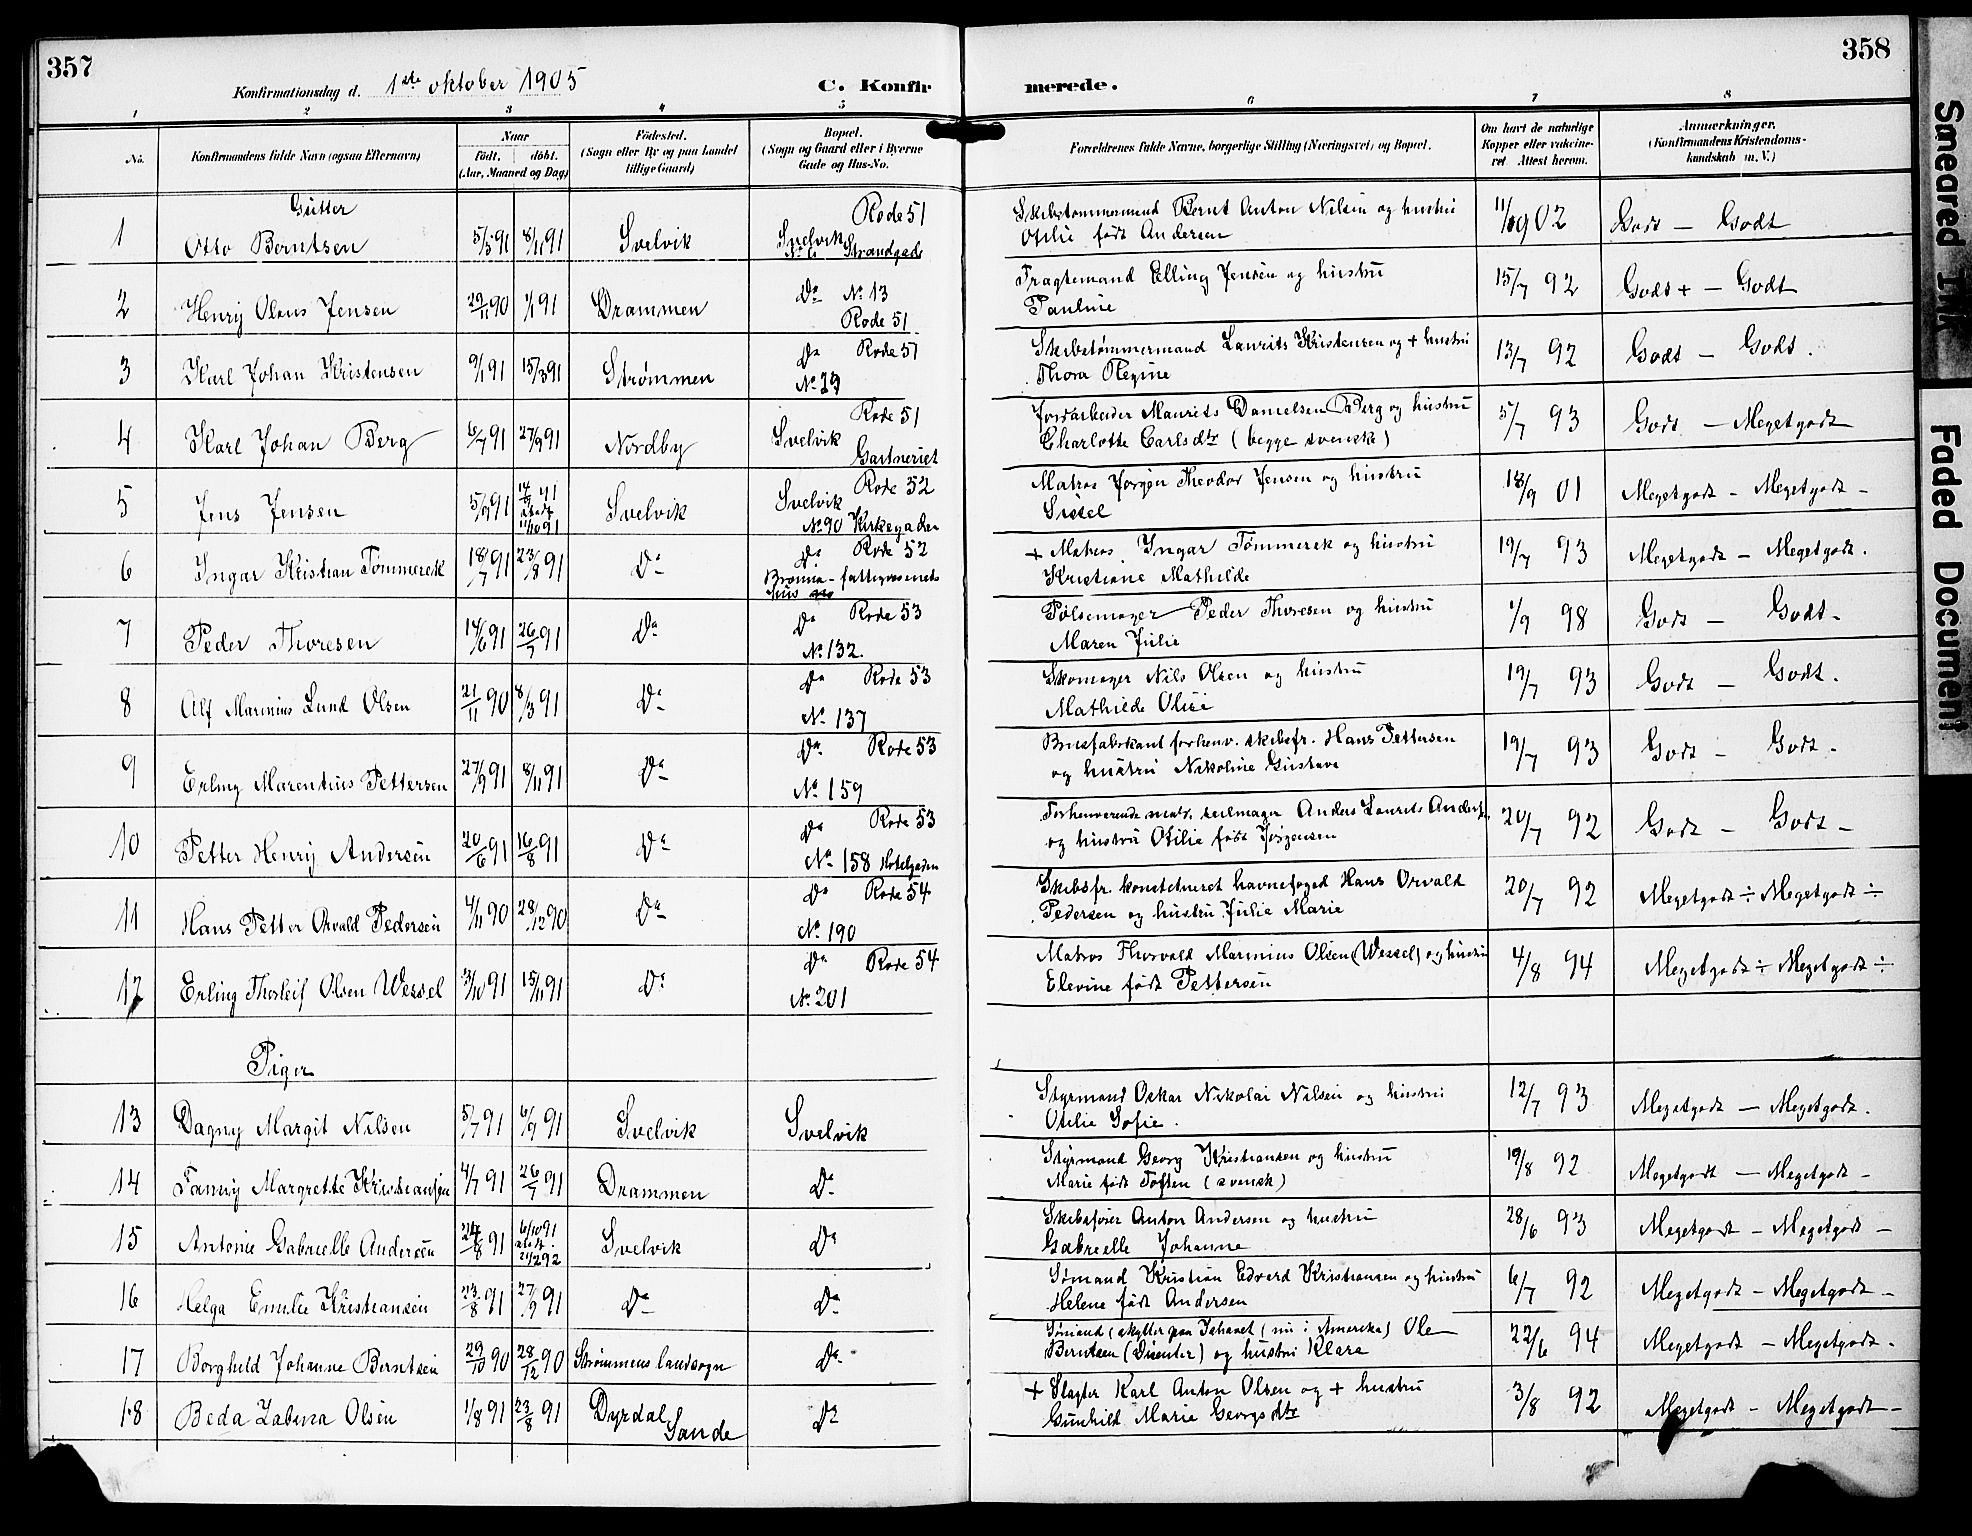 357
358
Konfirmationsdag d. 1ste oktober 1905
C. Konfirmerede.
1 2 3 4 5 6 7 8
No. Konfirmandens fulde Navn (ogsaa Efternavn) Naar født, døbt. (Aar, Maaned og Dag) Fødested. (Sogn eller By og paa Landet tillige Gaard) Bopæl. (Sogn og Gaard eller i Byerne Gade og Hus-No. Forældrenes fulde Navne, borgerlige Stilling (Næringsvei) og Bopæl. Om havt de naturlige Kopper eller vaccineret. Attest herom. Anmærkninger. (Konfirmandens Kristendomskundskab m. V.)
Gutter
1 Otto Berntsen 5/5 91 8/11 91 Svelvik Rode 51 Svelvik Strandgade Skibstømmermand Bernt Anton Nilsen og hustru Otilie født Andersen 1902 Godt — Godt
2 Henry Olaus Jensen 29/11 90 1/1 91 Drammen Do No 13 Rode 51 Fragtemand Elling Jensen og hustru Pauline 15/7 92 Godt + — Godt
3 Karl Johan Kristensen 9/1 91 15/3 91 Strømmen Do Rode 51 No 29 Skibstømmermand Laurits Kristensen og + hustru Thora Olegine 13/7 92 Godt — Godt.
4 Karl Johan Berg 6/7 91 27/9 91 Nordby Rode 51 Svelvik Gartneriet Jordarbeider Maurits Danielsen Berg og hustru Charlotte Carlsdtr (begge svensk) 5/7 93 Godt — Megetgodt
5 Jens Jensen 5/9 91 11/10 91 Svelvik Rode 52 Svelvik No 90 Kirkegaden Matros Jørgen Theodor Jensen og hustru Sissel 18/9 01 Megetgodt — Megetgodt —
6 Ingar Kristian Tømmerek 18/7 91 23/8 91 Do Do Rode 52 fattigvæsenets hus + Matros Ingar Tømmerek og hustru Kristiane Mathilde 19/7 93 Megetgodt — Megetgodt.
7 Peder Thoresen 14/6 91 26/7 91 Do Do Rode 53 No 132. Pølsemager Peder Thoresen og hustru Maren Julie 1/9 98 Godt — Godt —
8 Alf Marinius Lund Olsen 21/11 90 8/3 91 Do Do Rode 53 No 137 Skomager Nils Olsen og hustru Mathilde Olise 19/7 93 Godt — Godt.
9 Erling Marentius Pettersen 27/9 91 8/11 91 Do Do Rode 53 No 159 Brusfabrikant forhenv. skibsfr. Hans Pettersen og hustru Nikoline Gustava 19/7 93 Godt — Godt —
10 Petter Henry Andersen 20/6 91 16/8 91 Do Do Rode 53 No 158 Hotelgaden Forhenværende matr. seilmager Anders Laurits Anders. og hustru Otilie født Jørgensen 20/7 92 Godt — Godt —
11 Hans Petter Orvald Pedersen 4/11 90 28/12 90 Do Do Rode 54 No 190 Skibsfr. konstitueret havnefoged Hans Orvald Pedersen og hustru Julie Marie 20/7 92 Megetgodt ÷ Megetgodt ÷
12 Erling Thorleif Olsen Wessel 3/10 91 15/11 91 Do Do Rode 54 No 201 Matros Thorvald Marinius Olsen (Wessel) og hustru Elevine født Pettersen 4/8 94 Megetgodt ÷ Megetgodt ÷
Piger
13 Dagny Margit Nilsen 5/7 91 6/9 91 Svelvik Svelvik Styrmand Oskar Nikolai Nilsen og hustru Otilie Sofie. 12/7 93 Megetgodt — Megetgodt.
14 Fanny Margrethe Kristiansen 4/7 91 26/7 91 Drammen Do Styrmand Georg Kristiansen og hustru Marie født Toften (svensk) 19/8 92 Megetgodt — Megetgodt —
15 Antonie Gabrielle Andersen 24/8 91 6/10 91 21/2 92 Svelvik Do Skibsfører Anton Andersen og hustru Gabrielle Johanne 28/6 93 Megetgodt — Megetgodt —
16 Helga Emilie Kristiansen 23/8 91 27/9 91 Do Do Sømand Kristian Edvard Kristiansen og hustru Helene født Andersen 6/7 92 Megetgodt — Megetgodt —
17 Borghild Johanne Berntsen 29/10 90 28/12 90 Strømmens landsogn Do Sømand (nu i Amerika) Ole Berntsen (Disenter) og hustru Klara 22/6 94 Megetgodt — Megetgodt.
18 Beda Zabina Olsen 1/8 91 23/8 91 Dyrdal Sande Do + Slagter Karl Anton Olsen og + hustru Gunhild Marie Georgsdtr 3/8 92 Megetgodt — Megetgodt —
Smeared Ink
Faded Document